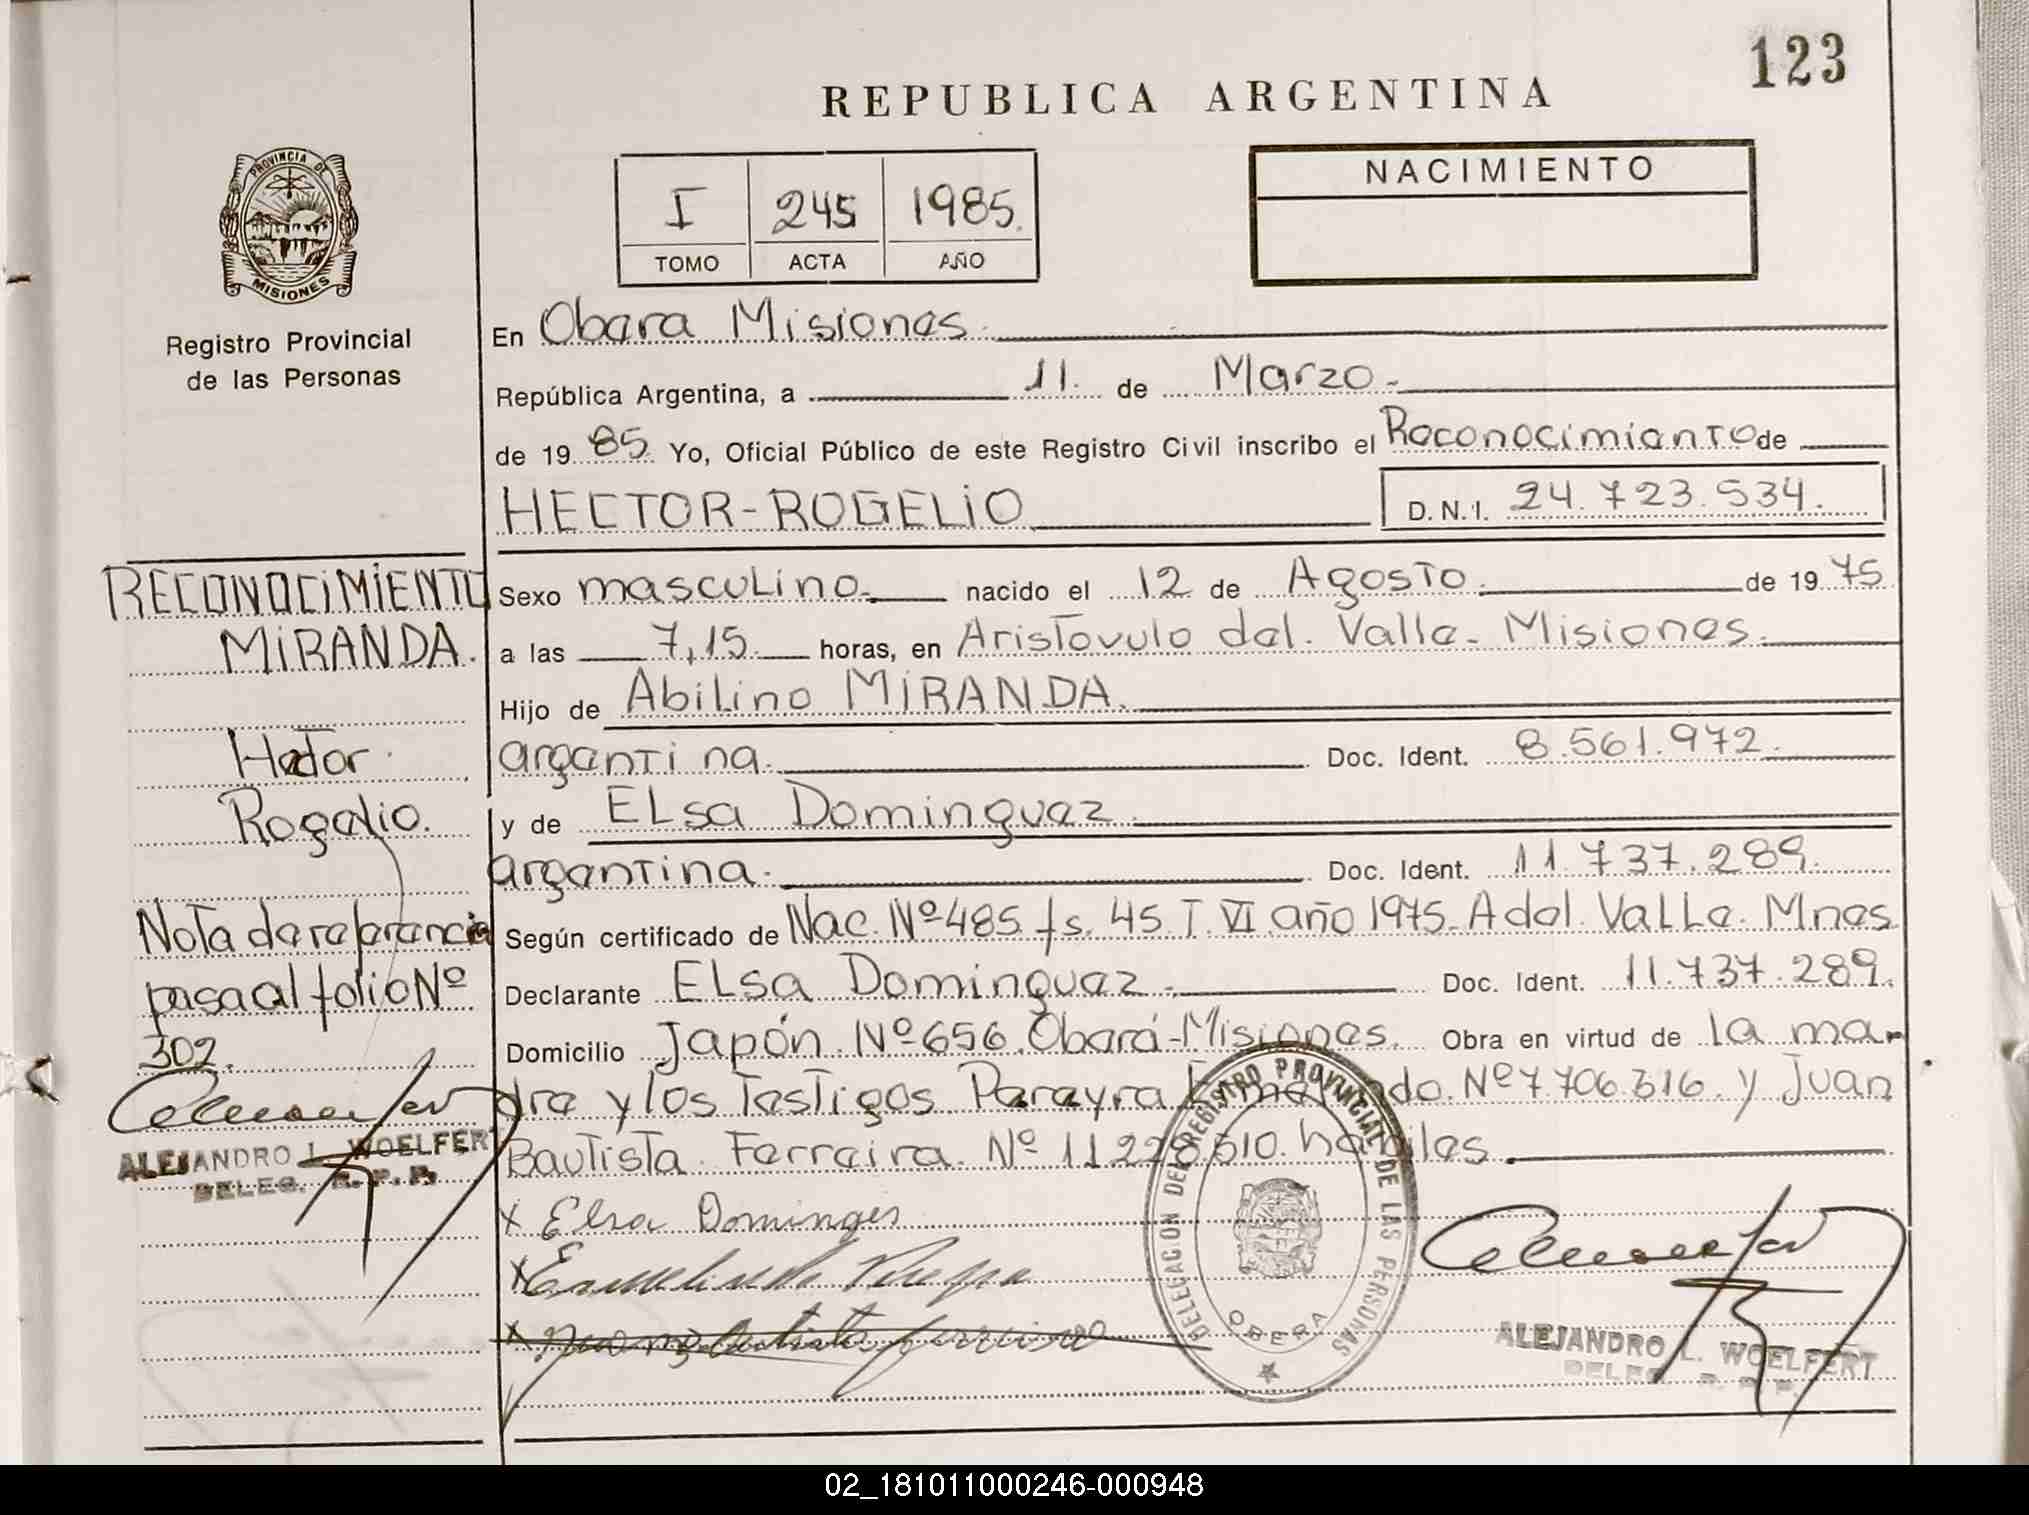 123
REPUBLICA ARGENTINA
PROVINCIA DE
MISIONES
Registro Provincial
de las Personas
I 245 1985.
TOMO ACTA AÑO
NACIMIENTO
En Obera Misiones.
República Argentina, a 11. de Marzo.-
de 19 85. Yo, Oficial Público de este Registro Civil inscribo el Reconocimiento de
HECTOR-ROGELIO D.N.I. 24.723.534.
RECONOCIMIENTO
MIRANDA.
Hector.
Rogelio.
Nota de referencia
pasa al folio Nº
302.
ALEJANDRO L. WOELFERT
DELEG. R. P. P.
Sexo masculino.- nacido el 12 de Agosto. de 19 75
a las 7,15. horas, en Aristóvulo del. Valle- Misiones.
Hijo de Abilino MIRANDA.
argentina. Doc. Ident. 8.561.972.
y de ELsa Dominguez.
argentina. Doc. Ident. 11.737.289.
Según certificado de Nac. Nº 485 fs. 45 T. VI año 1975. A del. VaLLe. Mnes
Declarante ELsa Dominguez. Doc. Ident. 11.737.289.
Domicilio Japón. Nº 656. Oberá-Misiones. Obra en virtud de la ma-
dre y los testigos Pereyra Nº 7.706.316. y Juan
Bautista. Ferreira. Nº 11.228.510. habiles.
x Elsa Domingues
x
x
DELEGACION DEL REGISTRO PROVINCIAL DE LAS PERSONAS
OBERA
ALEJANDRO L. WOELFERT
DELEG. R. P. P.
02_181011000246-000948